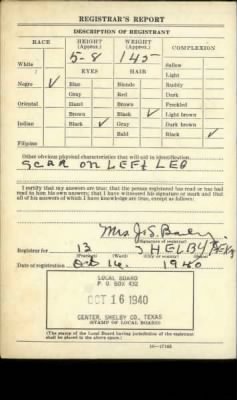 REGISTRAR'S REPORT
DESCRIPTION OF REGISTRANT
RACE HEIGHT (Approx.) WEIGHT (Approx.) COMPLEXION
5-8 145
White Sallow
EYES HAIR Light
Negro ✓ Blue Blonde Ruddy
Gray Red Dark
Oriental Hazel Brown Freckled
Brown Black ✓ Light brown
Indian Black ✓ Gray Dark brown
Bald Black ✓
Filipino
Other obvious physical characteristics that will aid in identification
SCAR on LEFT LEG
I certify that my answers are true; that the person registered has read or has had
read to him his own answers; that I have witnessed his signature or mark and that
all of his answers of which I have knowledge are true, except as follows:
Mrs. J. S.
(Signature of registrar)
Registrar for 13 SHELBY
(Precinct) (Ward) (City or county)
Date of registration Oct 16. 1940
LOCAL BOARD
P. O. BOX 432
OCT 16 1940
CENTER, SHELBY CO., TEXAS
STAMP OF LOCAL BOARD
(The stamp of the Local Board having jurisdiction of the registrant
shall be placed in the above space.)